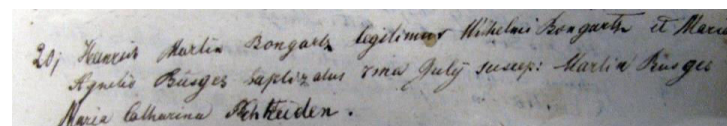 20j Henrich Martin Bongartz legitimus Wilhelmi Bongartz et Maria
Agnetis Büsges baptizatus 7ma Julÿ suscep: Martin Büsges
Maria Catharina